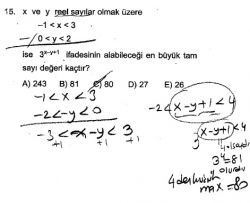 15. x ve y reel sayılar olmak üzere
-1 < x < 3
0 < y < 2
ise 3ˣ⁻ʸ⁺¹ ifadesinin alabileceği en büyük tam
sayı değeri kaçtır?
A) 243 B) 81 C) 80 D) 27 E) 26
-1 < x < 3
-2 < -y < 0
-3 < x-y < 3
+1 +1 +1
-2 < x-y+1 < 4
x-y+1 < 4
4 olsaydı
3⁴=81
olurdu
max = 80